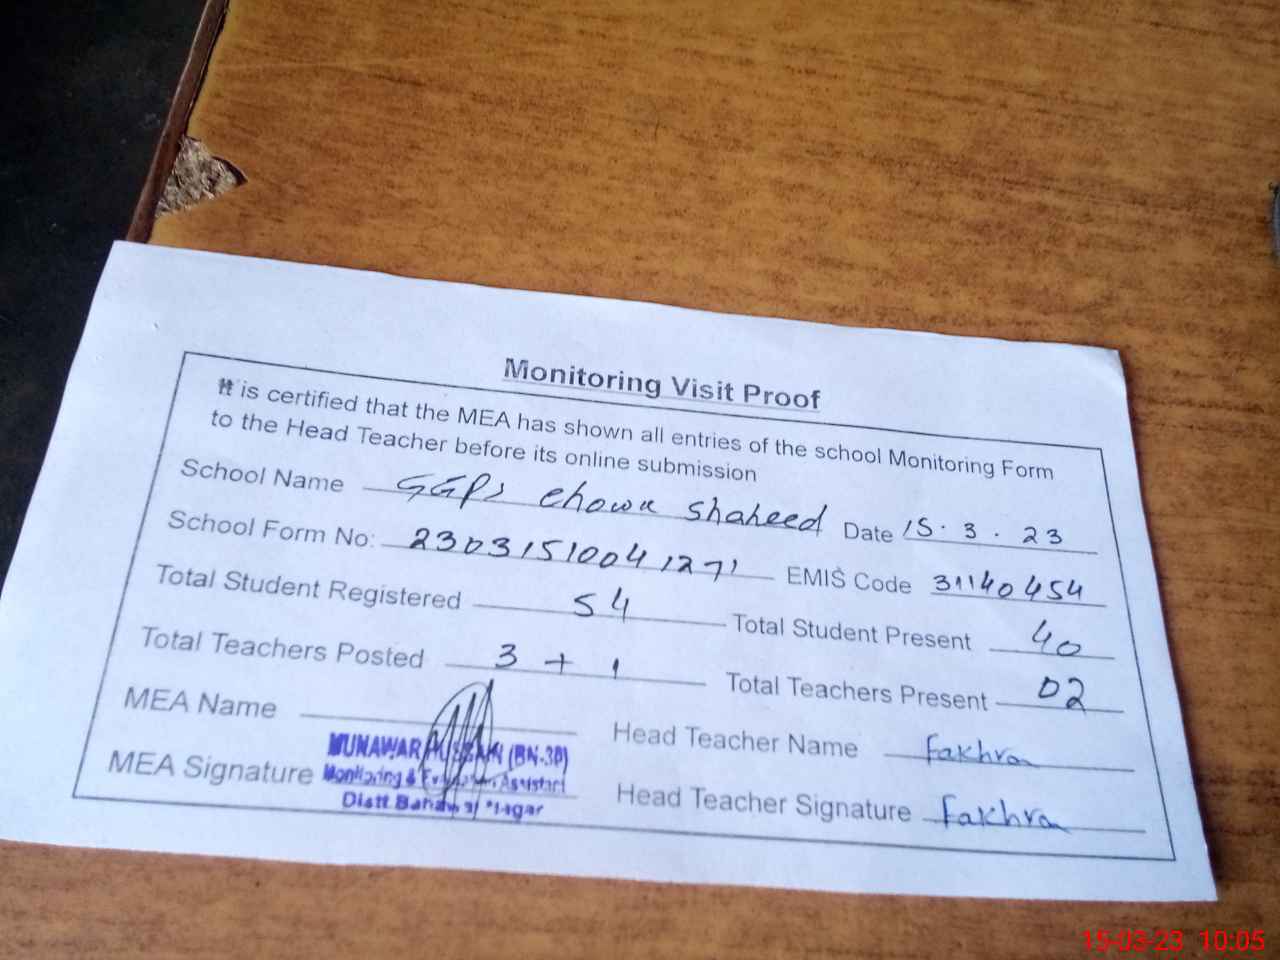 Monitoring Visit Proof
It is certified that the MEA has shown all entries of the school Monitoring Form
to the Head Teacher before its online submission
School Name GGPS chowk Shaheed Date 15.3.23
School Form No: 2303151004 1271 EMIS Code 31140454
Total Student Registered 54 Total Student Present 40
Total Teachers Posted 3 + 1 Total Teachers Present 02
MEA Name Head Teacher Name Fakhra
MUNAWAR HUSSAIN (BN-30)
MEA Signature Monitoring & Evaluation Assistant Head Teacher Signature Fakhra
Distt. Bahawalnagar
15-03-23 10:05